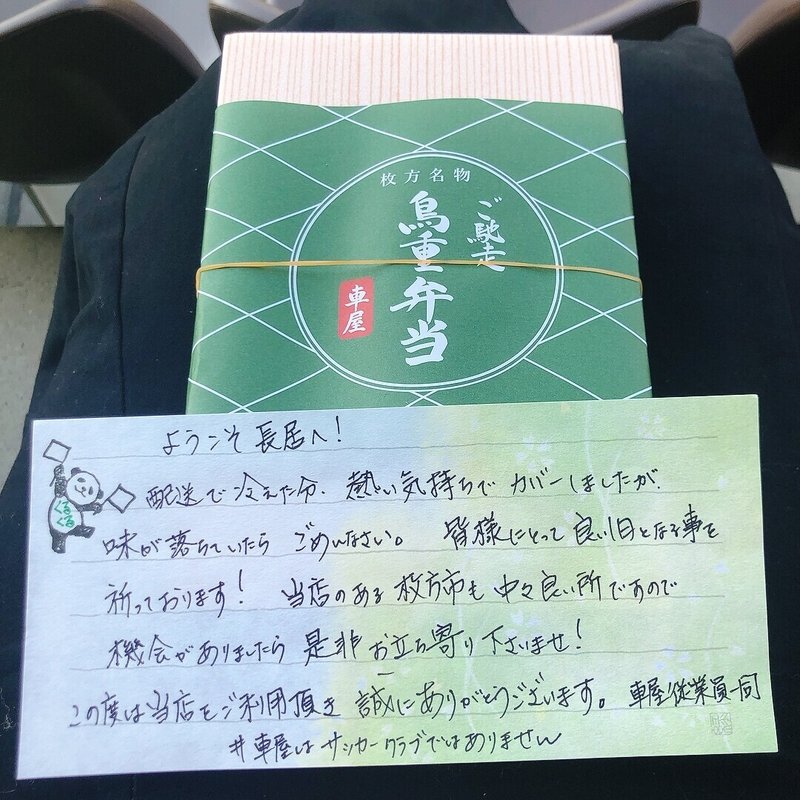 枚方名物
ご馳走
鳥重弁当
車屋
ようこそ長居へ!
配送で冷えた分、熱い気持ちでカバーしましたが、
味が落ちていたら ごめんなさい。 皆様にとって良い1日となる事を
祈っております! 当店のある枚方市も中々良い所ですので
機会がありましたら 是非お立ち寄り下さいませ!
この度は当店をご利用頂き 誠にありがとうございます。 車屋従業員一同
#車屋はサッカークラブではありません
くるくる